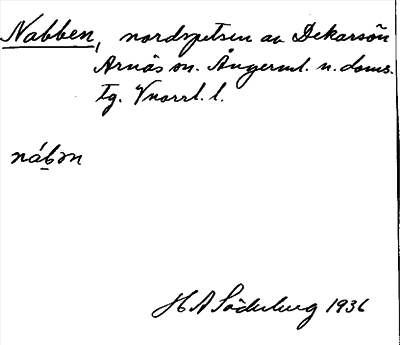 Nabben, nordspetsen av Dekarsön
Arnäs sn. Ångerml. n. doms.
tg. Vnorrl. l.
nábən
H A Söderberg 1936